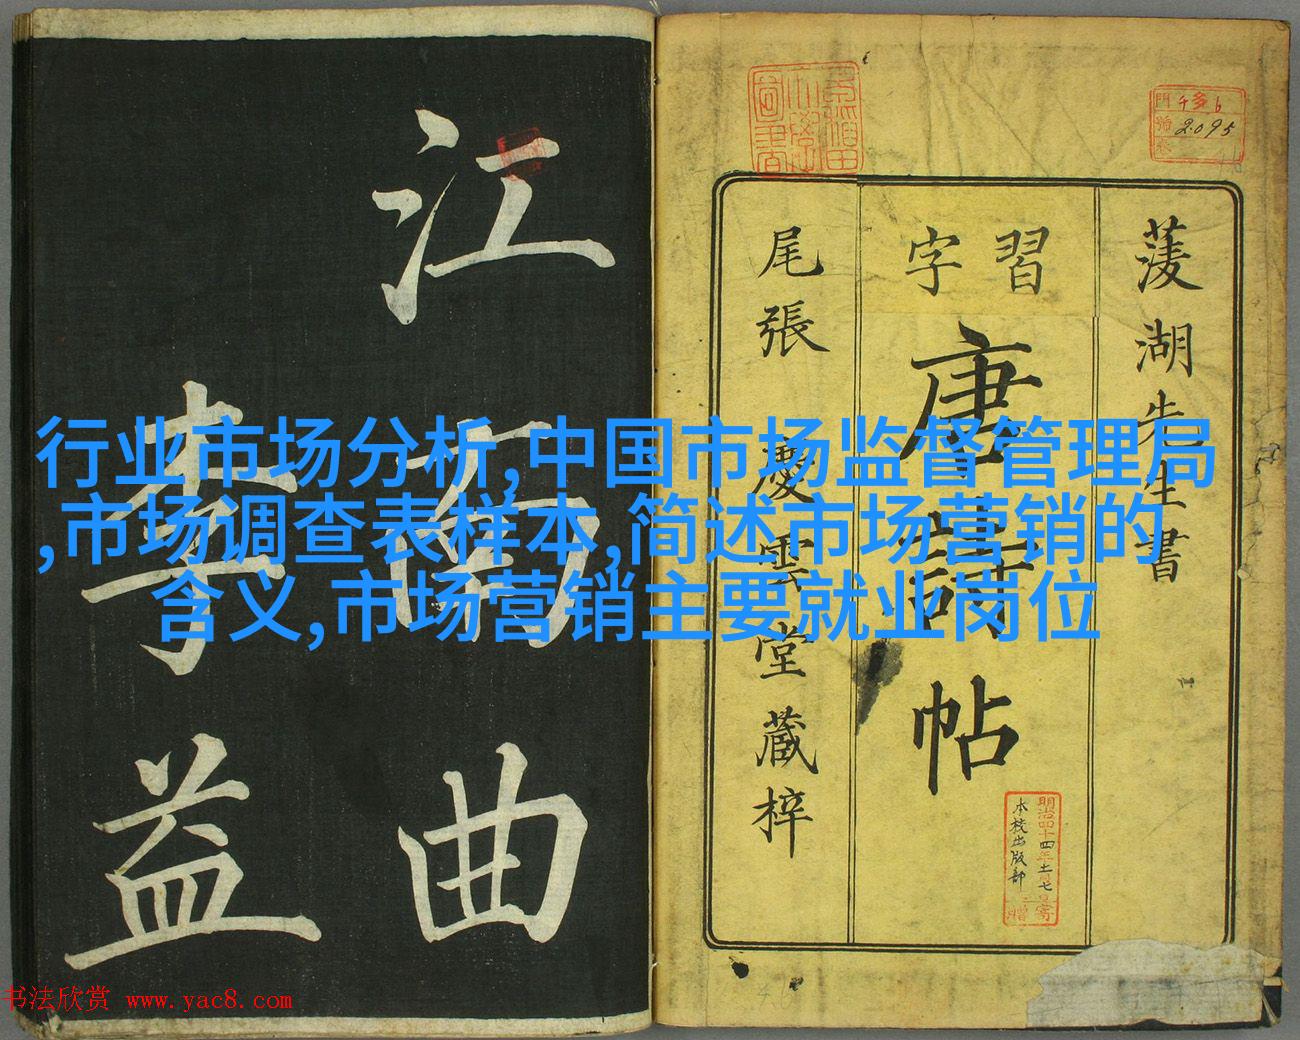 行业市场分析,中国市场监督管理局
,市场调查表样本,简述市场营销的
含义,市场营销主要就业岗位
蓤湖先生書
習字
唐詩帖
尾張 慶雲堂蔵梓
江南曲
李益
門 千多6
號 2095
明治四十四年十二月七日
本校出版部
寄贈
书法欣赏 www.yac8.com